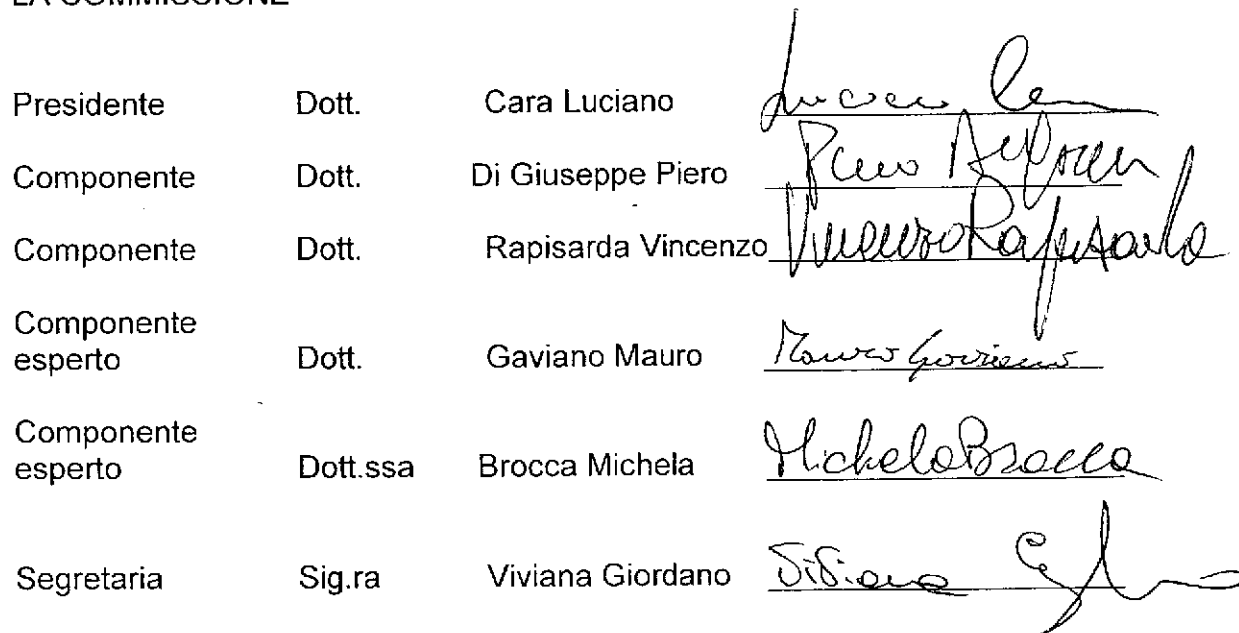 LA COMMISSIONE
Presidente Dott. Cara Luciano
Componente Dott. Di Giuseppe Piero
Componente Dott. Rapisarda Vincenzo Vincenzo Rapisarda
Componente
esperto Dott. Gaviano Mauro Mauro Gaviano
Componente
esperto Dott.ssa Brocca Michela Michela Brocca
Segretaria Sig.ra Viviana Giordano